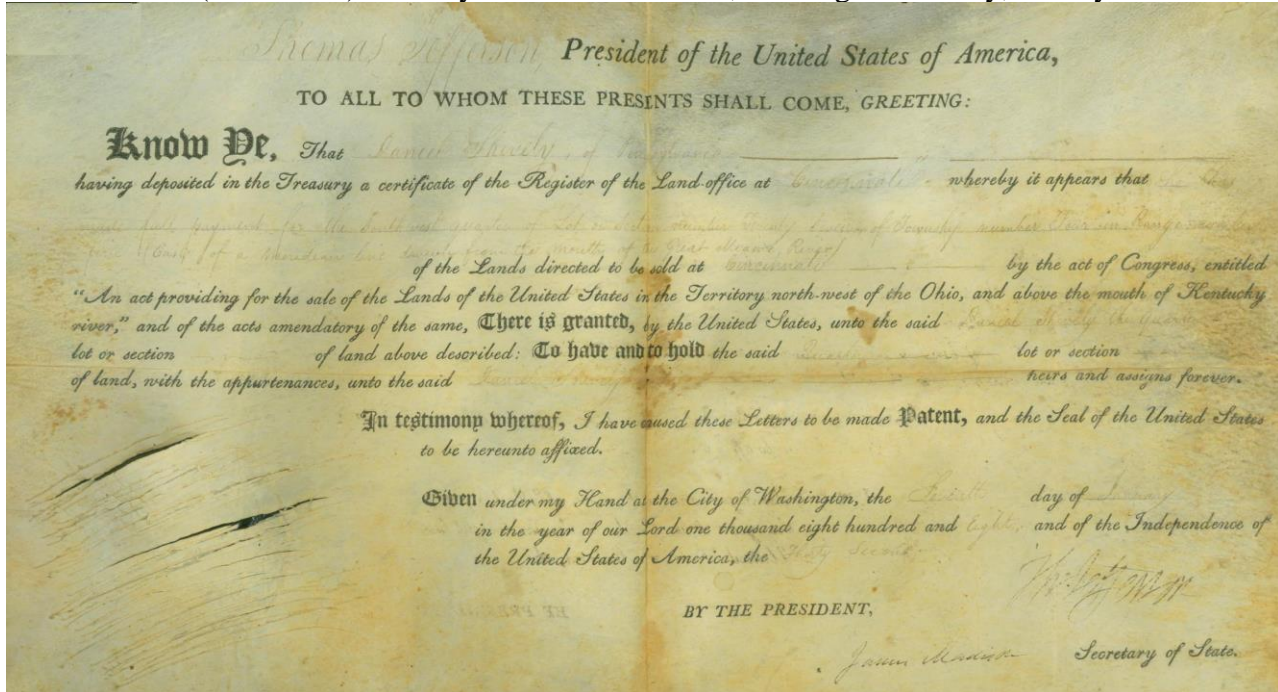 Thomas Jefferson, President of the United States of America,
TO ALL TO WHOM THESE PRESENTS SHALL COME, GREETING:
Know Ye, That Daniel Shively, of
having deposited in the Treasury a certificate of the Register of the Land-office at Cincinnati whereby it appears that
made full payment for the South west quarter of Lot or section number of Township number Four in Range number
of a Meridian line drawn from the mouth of the Great Miami River
of the Lands directed to be sold at Cincinnati by the act of Congress, entitled
"An act providing for the sale of the Lands of the United States in the Territory north-west of the Ohio, and above the mouth of Kentucky
river," and of the acts amendatory of the same, There is granted, by the United States, unto the said Daniel Shively the quarter
lot or section of land above described: To have and to hold the said quarter lot or section
of land, with the appurtenances, unto the said Daniel Shively heirs and assigns forever.
In testimony whereof, I have caused these Letters to be made Patent, and the Seal of the United States
to be hereunto affixed.
Given under my Hand at the City of Washington, the day of
in the year of our Lord one thousand eight hundred and eight and of the Independence of
the United States of America, the Thirty Second
Th: Jefferson
BY THE PRESIDENT,
James Madison Secretary of State.